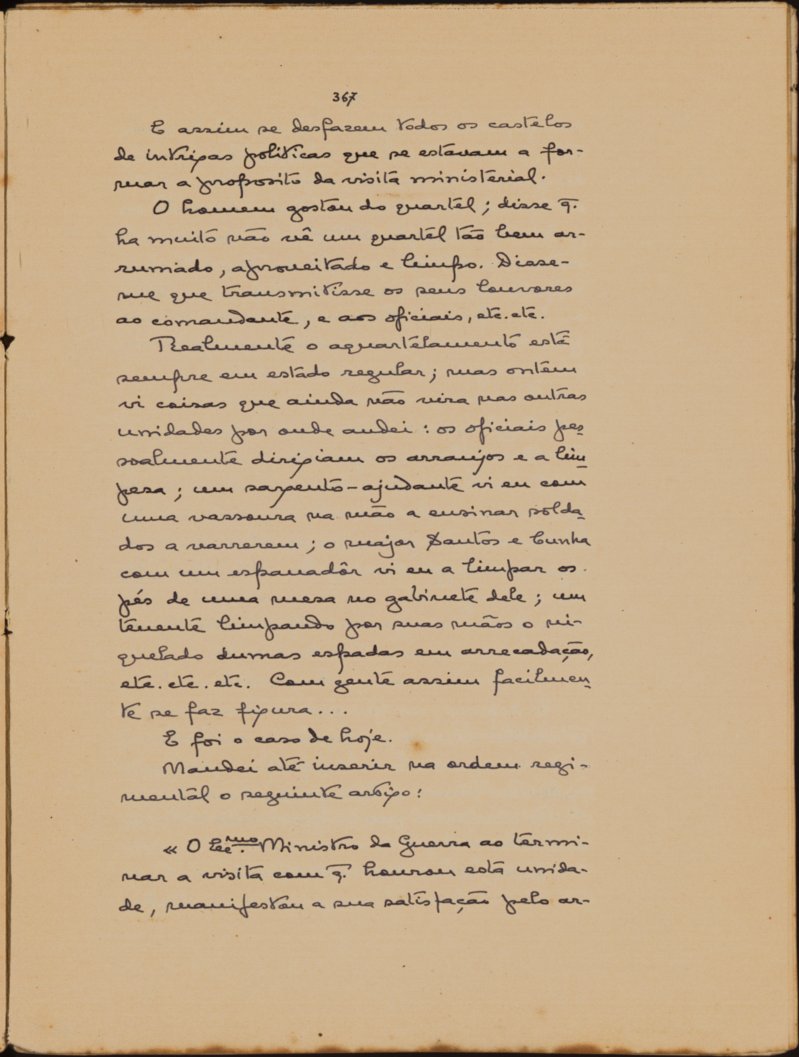 367
E assim se desfazem todos os castelos
de intrigas politicas que se estavam a for-
mar a proposito da visita ministerial.
O homem gostou do quartel; disse q.
ha muito não vê um quartél tão bem ar-
rumado, aproveitado e limpo. Disse-
me que transmitisse os seus louvores
ao comandante, e aos oficiais, etc. etc.
Realmente o aquartelamento está
sempre em estado regular; mas ontem
vi coisas que ainda não vira nas outras
unidades por onde andei: os oficiais pes
soalmente dirigiam os arranjos e a lim
pesa; um sargento-ajudante vi eu com
uma vassoura na mão a ensinar solda
dos a varrerem; o major Santos e Cunha
com um espanadôr vi eu a limpar os
pés de uma mesa no gabinete dele; um
tenente limpando por suas mãos o ni-
quelado dumas espadas em arrecadação,
etc. etc. etc. Com gente assim facilmen
te se faz figura...
E foi o caso de hoje.
Mandei até inserir na ordem regi-
mentál o seguinte artigo:
« O Ecc.mo Ministro da Guerra ao termi-
nar a visita com q. honrou esta unida-
de, manifestou a sua satisfação pelo ar-